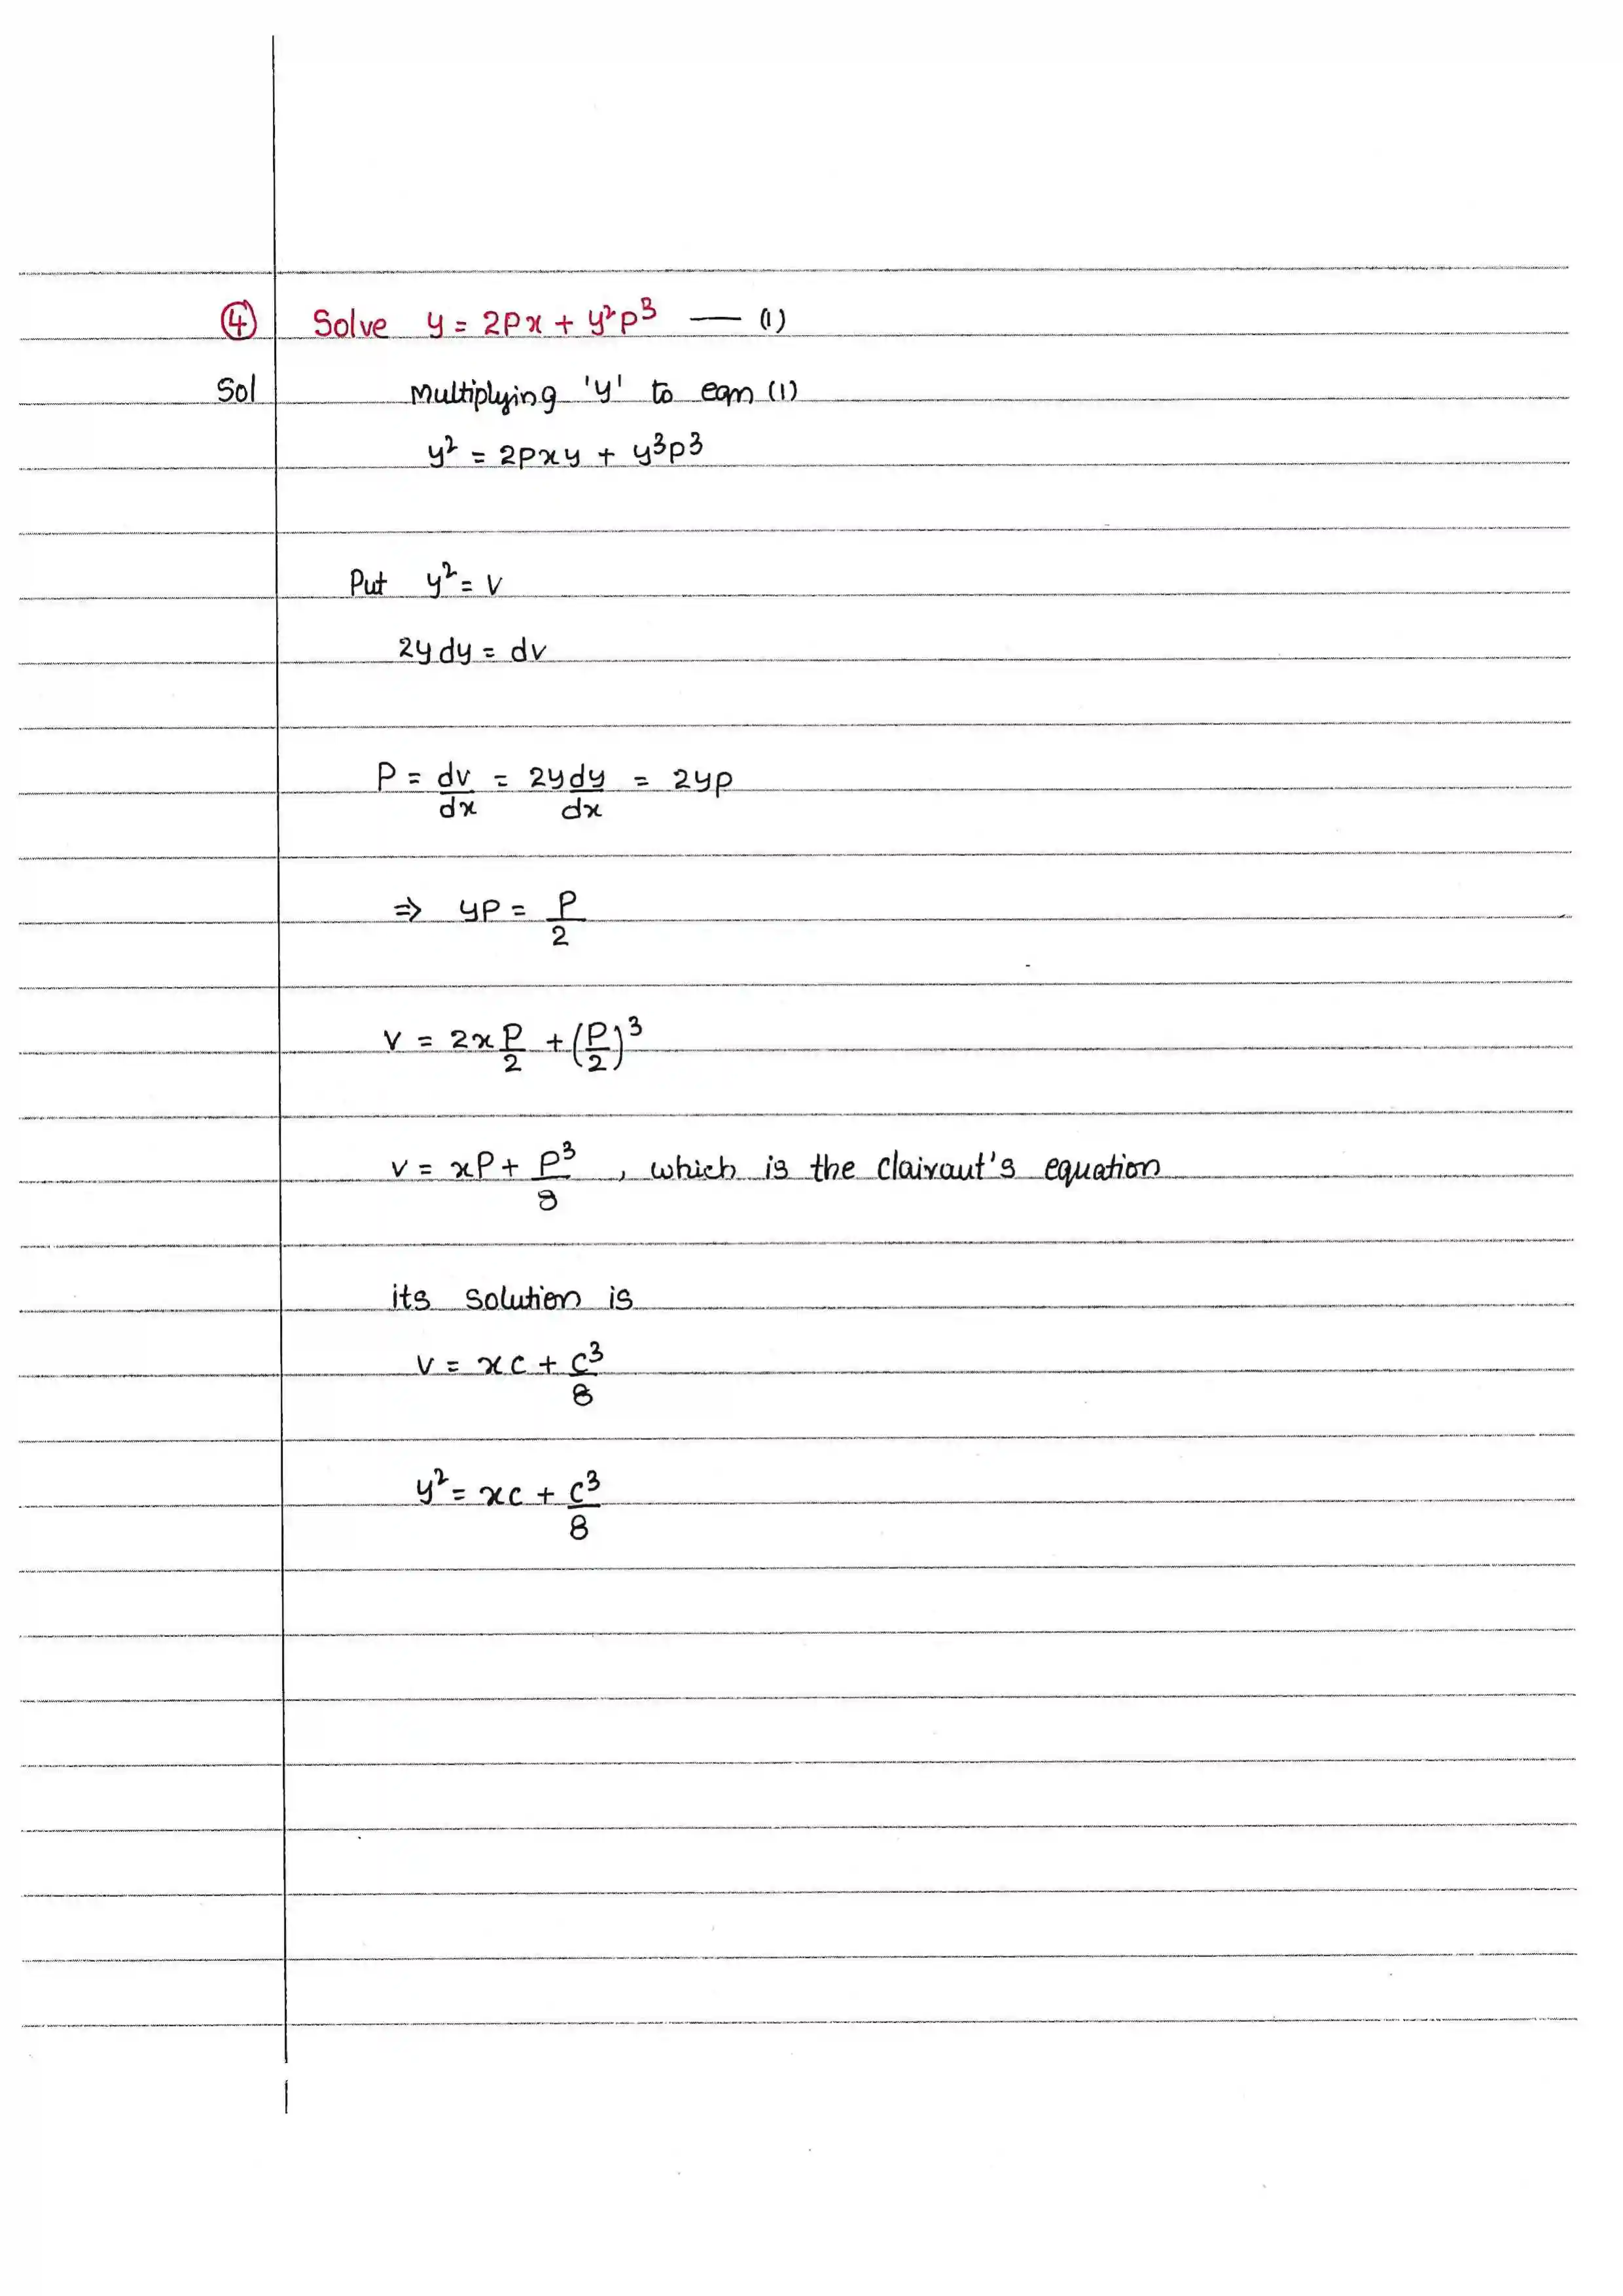 ④ Solve y = 2px + y²p³ — (1)
Sol Multiplying 'y' to eqn (1)
y² = 2pxy + y³p³
Put y² = v
2y dy = dv
P = dv/dx = 2y dy/dx = 2yp
⇒ yp = P/2
v = 2x P/2 + (P/2)³
v = xP + P³/8 , which is the clairaut's equation
its solution is
v = xc + c³/8
y² = xc + c³/8